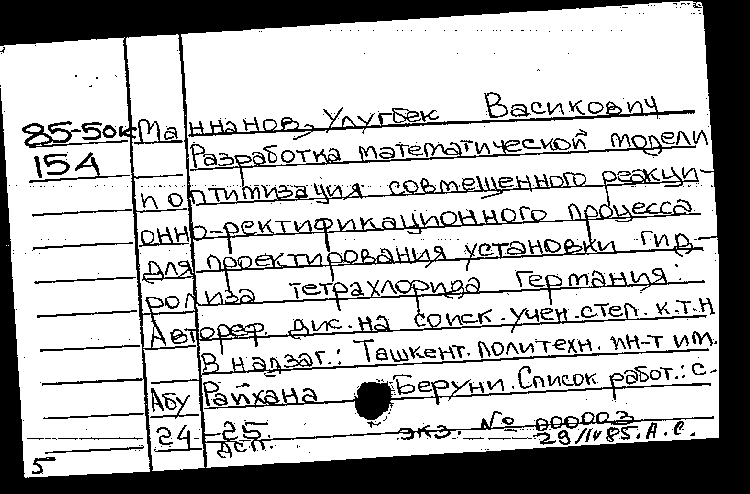 85-50к Маннанов, Улугбек Васикович
154 Разработка математической модели
и оптимизация совмещенного реакци-
онно-ректификационного процесса
для проектирования установки гид-
ролиза тетрахлорида германия:
Автореф. дис. на соиск. учен. степ. к.т.н
В надзаг.: Ташкент. политехн. ин-т им.
Абу Райхана Беруни. Список работ.: с.
24-25 экз. № 000003
дсп. 29/IV 85. А.С.
5